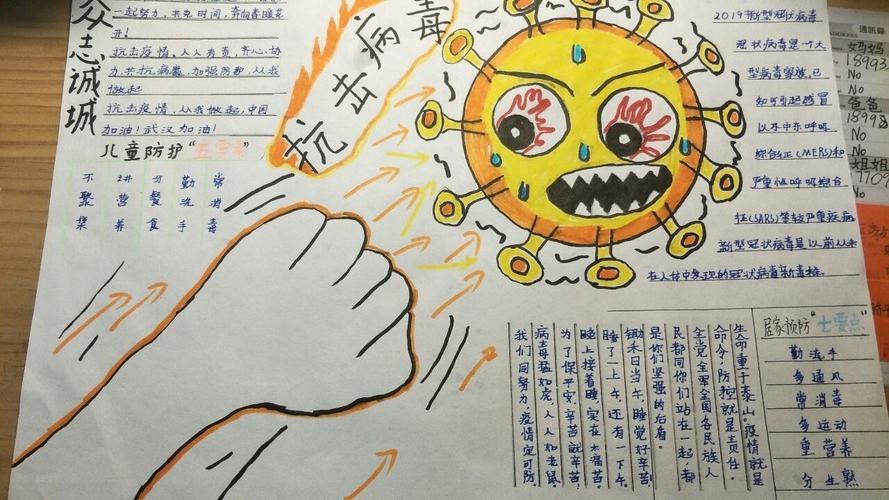 众志诚城
一起努力,共克时间,奔向春暖花
开!
抗击疫情、人人有责、齐心协
力、共抗病毒、加强防护、从我
做起
抗击疫情、从我做起,中国
加油!武汉加油!
抗击病毒
儿童防护"五要素"
不聚集
讲营养
分餐食
勤洗手
常消毒
2019新型冠状病毒
冠状病毒是一个大
型病毒家族,已
知可引起感冒
以及中东呼吸
综合征(MERS)和
严重性呼吸综合
征(SARS)等较严重疾病
新型冠状病毒是以前从未
在人体中发现的冠状病毒新毒株.
生命重于泰山。疫情就是
命令,防控就是责任。
全党全军全国各民族人
民都同你们站在一起,都
是你们坚强的后盾。
锄禾日当午,睡觉好辛苦,
睡了一上午,还有一下午。
晚上接着睡,实在太痛苦,
为了保平安,辛苦就辛苦,
病毒猛如虎,人人如老鼠,
我们同努力,疫情定可防
居家预防"七要点"
勤洗手
多通风
常消毒
多运动
重营养
分生熟
通訊錄
ADDRESS
妈妈
18993
No
No
爸爸
1899
No
No
姐姐
1709
No